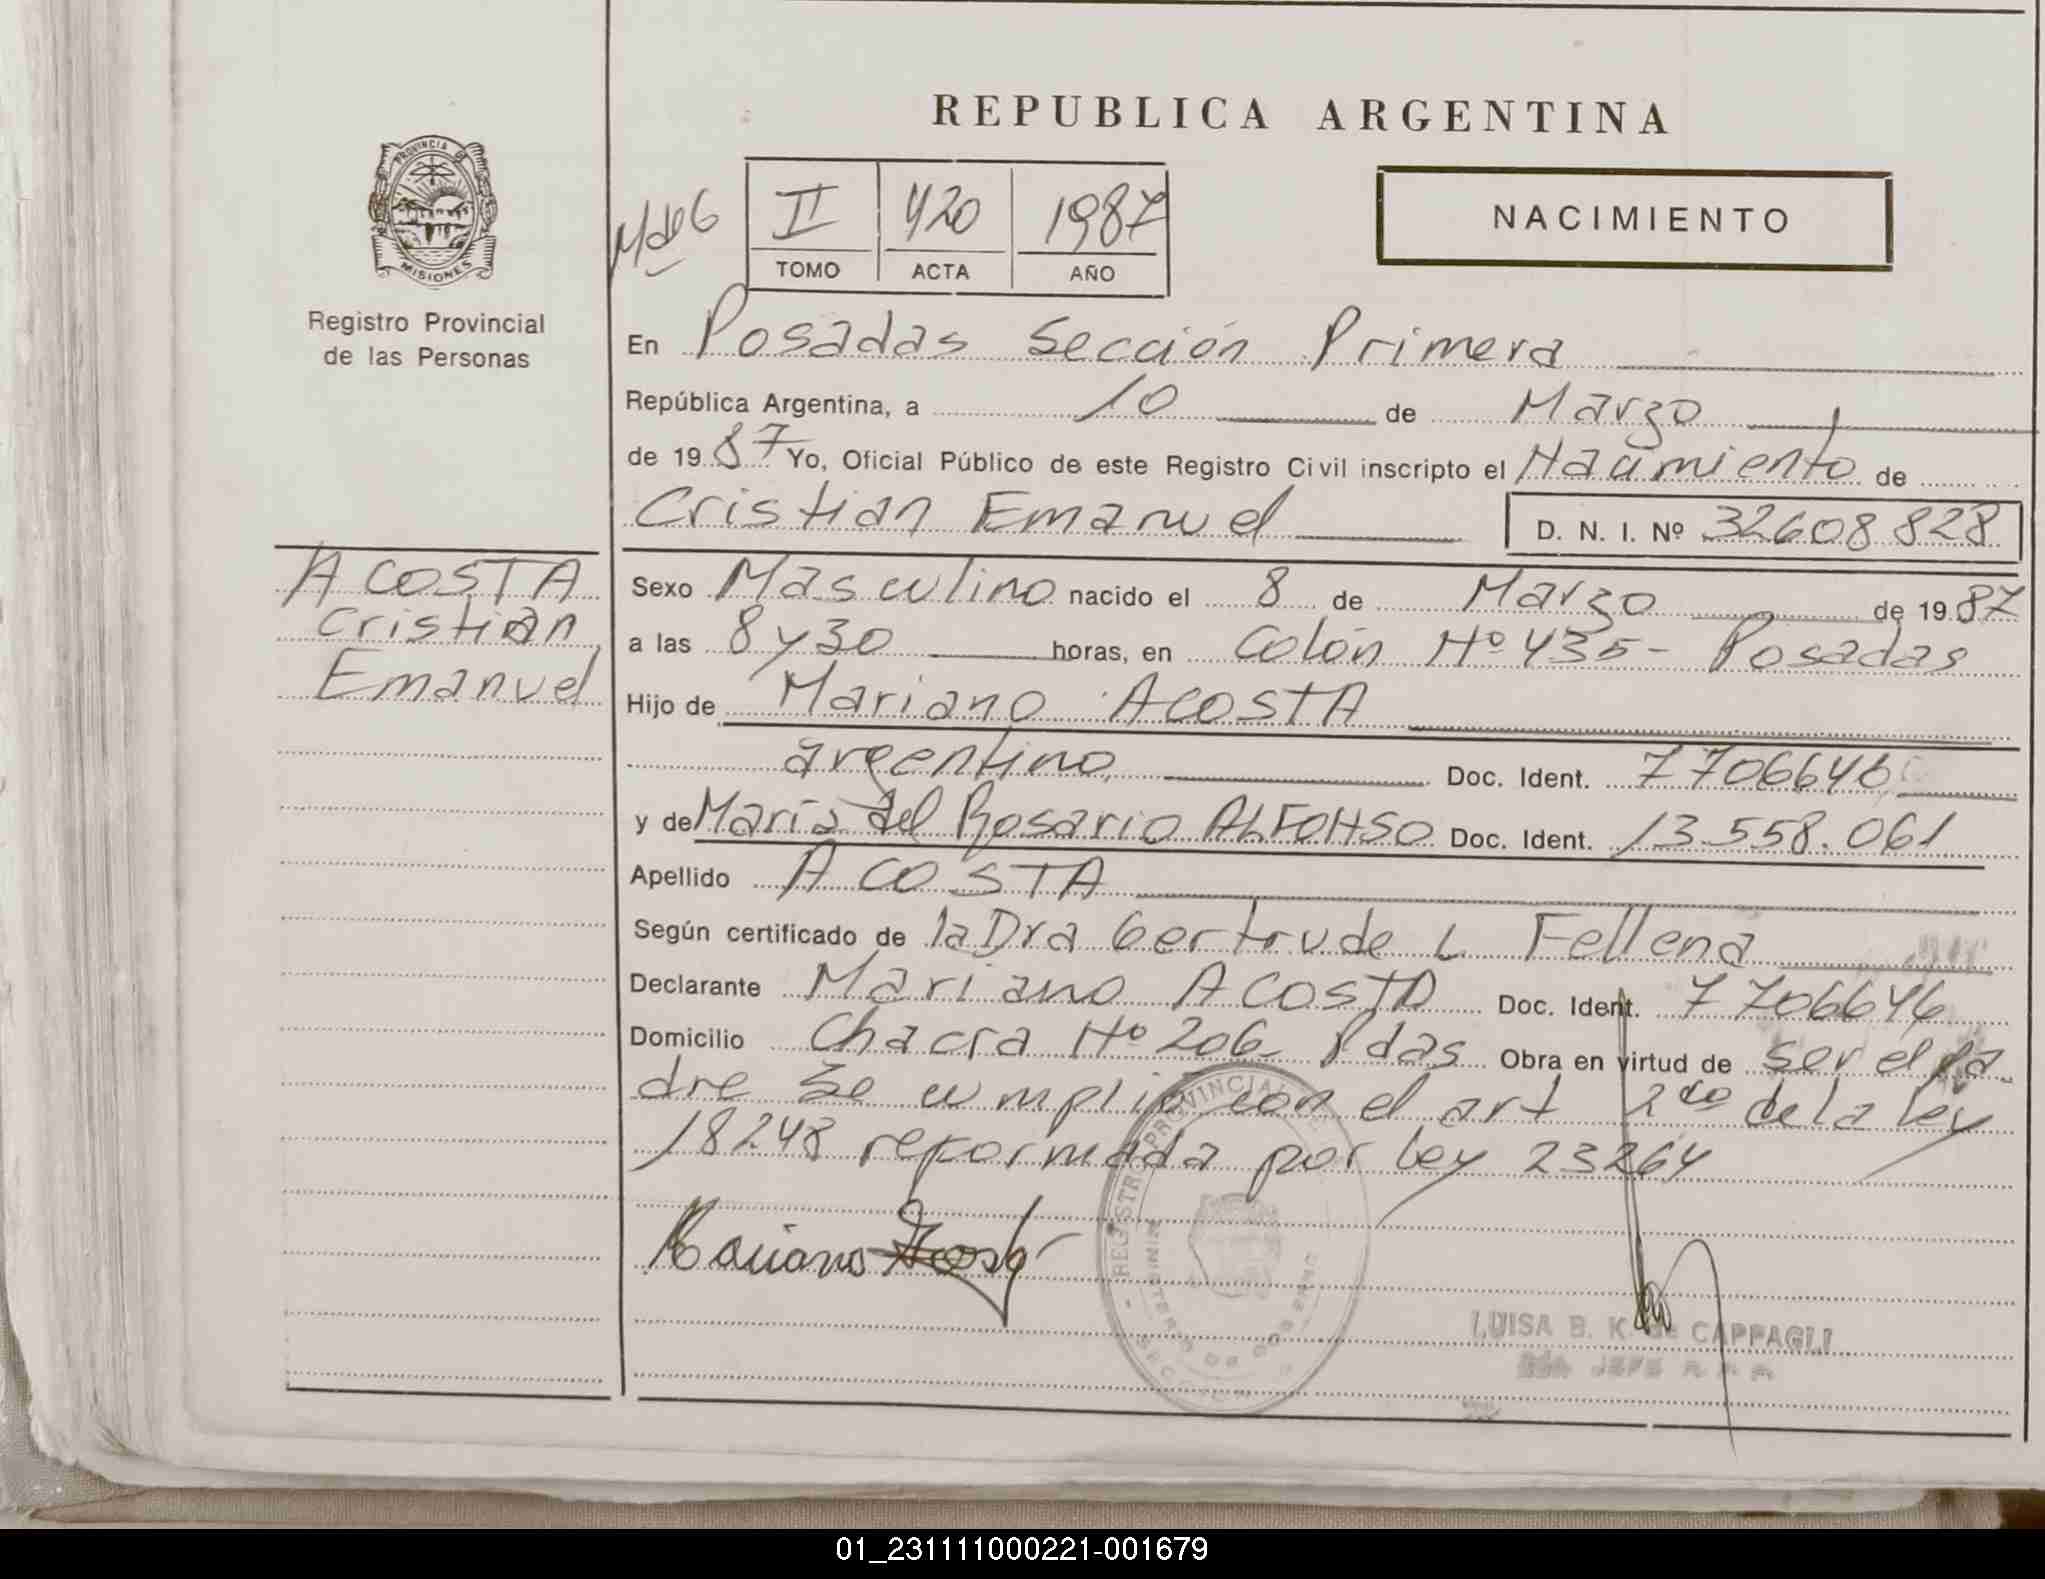 REPUBLICA ARGENTINA
PROVINCIA DE
MISIONES
Registro Provincial
de las Personas
II 420 1987
TOMO ACTA AÑO
NACIMIENTO
En Posadas Sección Primera
República Argentina, a 10 de Marzo
de 1987 Yo, Oficial Público de este Registro Civil inscripto el Nacimiento de
Cristian Emanuel D. N. I. Nº 32608828
ACOSTA
Cristian
Emanuel
Sexo Masculino nacido el 8 de Marzo de 1987
a las 8 y 30 horas, en Colón Nº 435 - Posadas
Hijo de Mariano ACOSTA
argentino, Doc. Ident. 7706646
y de María del Rosario ALFONSO Doc. Ident. 13.558.061
Apellido ACOSTA
Según certificado de la Dra Gertrude L Fellena
Declarante Mariano ACOSTA Doc. Ident. 7706646
Domicilio Chacra Nº 206 Pdas Obra en virtud de ser el pa
dre Se cumplió con el art 2do de la ley
18248 reformada por ley 23264
Mariano Acosta
REGISTRO PROVINCIAL
MINISTERIO DE GOBIERNO
SECCION
LUISA B. K. de CAPPAGLI
JEFE
01_231111000221-001679